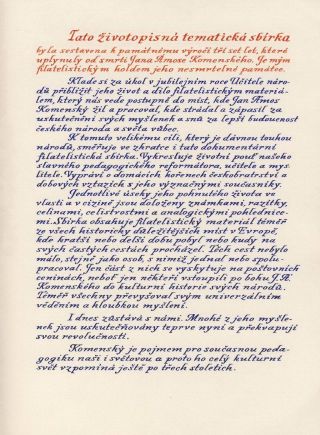 Tato životopisná tematická sbírka
byla sestavena k památnému výročí tří set let, které
uplynuly od smrti Jana Amose Komenského. Je mým
filatelistickým holdem jeho nesmrtelné památce.
Klade si za úkol v jubilejním roce Učitele národů
přiblížit jeho život a dílo filatelistickým materiálem,
který nás vede postupně do míst, kde Jan Amos
Komenský žil a pracoval, kde strádal a zápasil za
uskutečnění svých myšlenek a snů za lepší budoucnost
českého národa a světa vůbec.
K tomuto velikému cíli, který je dávnou touhou
národů, směřuje ve zkratce i tato dokumentární
filatelistická sbírka. Vykresluje životní pouť našeho
slavného pedagogického reformátora, učitele a myslitele.
Vypráví o domácích kořenech českobratrství a
dobových vztazích s jeho význačnými současníky.
Jednotlivé úseky jeho pohnutého života ve
vlasti a v cizině jsou doloženy známkami, razítky,
celinami, celistvostmi a analogickými pohlednicemi.
Sbírka obsahuje filatelistický materiál téměř
ze všech historicky důležitějších míst v Evropě,
kde kratší nebo delší dobu pobyl nebo kudy na
svých častých cestách procházel. Těch cest nebylo
málo, stejně jako osob, s nimiž jednal nebo spolupracoval.
Jen část z nich se vyskytuje na poštovních
ceninách, neboť jen někteří vstoupili po boku J. A.
Komenského do kulturní historie svých národů.
Téměř všechny převyšoval svým univerzálním
věděním a hloubkou myšlení.
I dnes zůstává s námi. Mnohé z jeho myšlenek
jsou uskutečňovány teprve nyní a překvapují
svou revolučností.
Komenský je pojmem pro současnou pedagogiku
naši i světovou a proto ho celý kulturní
svět vzpomíná ještě po třech stoletích.